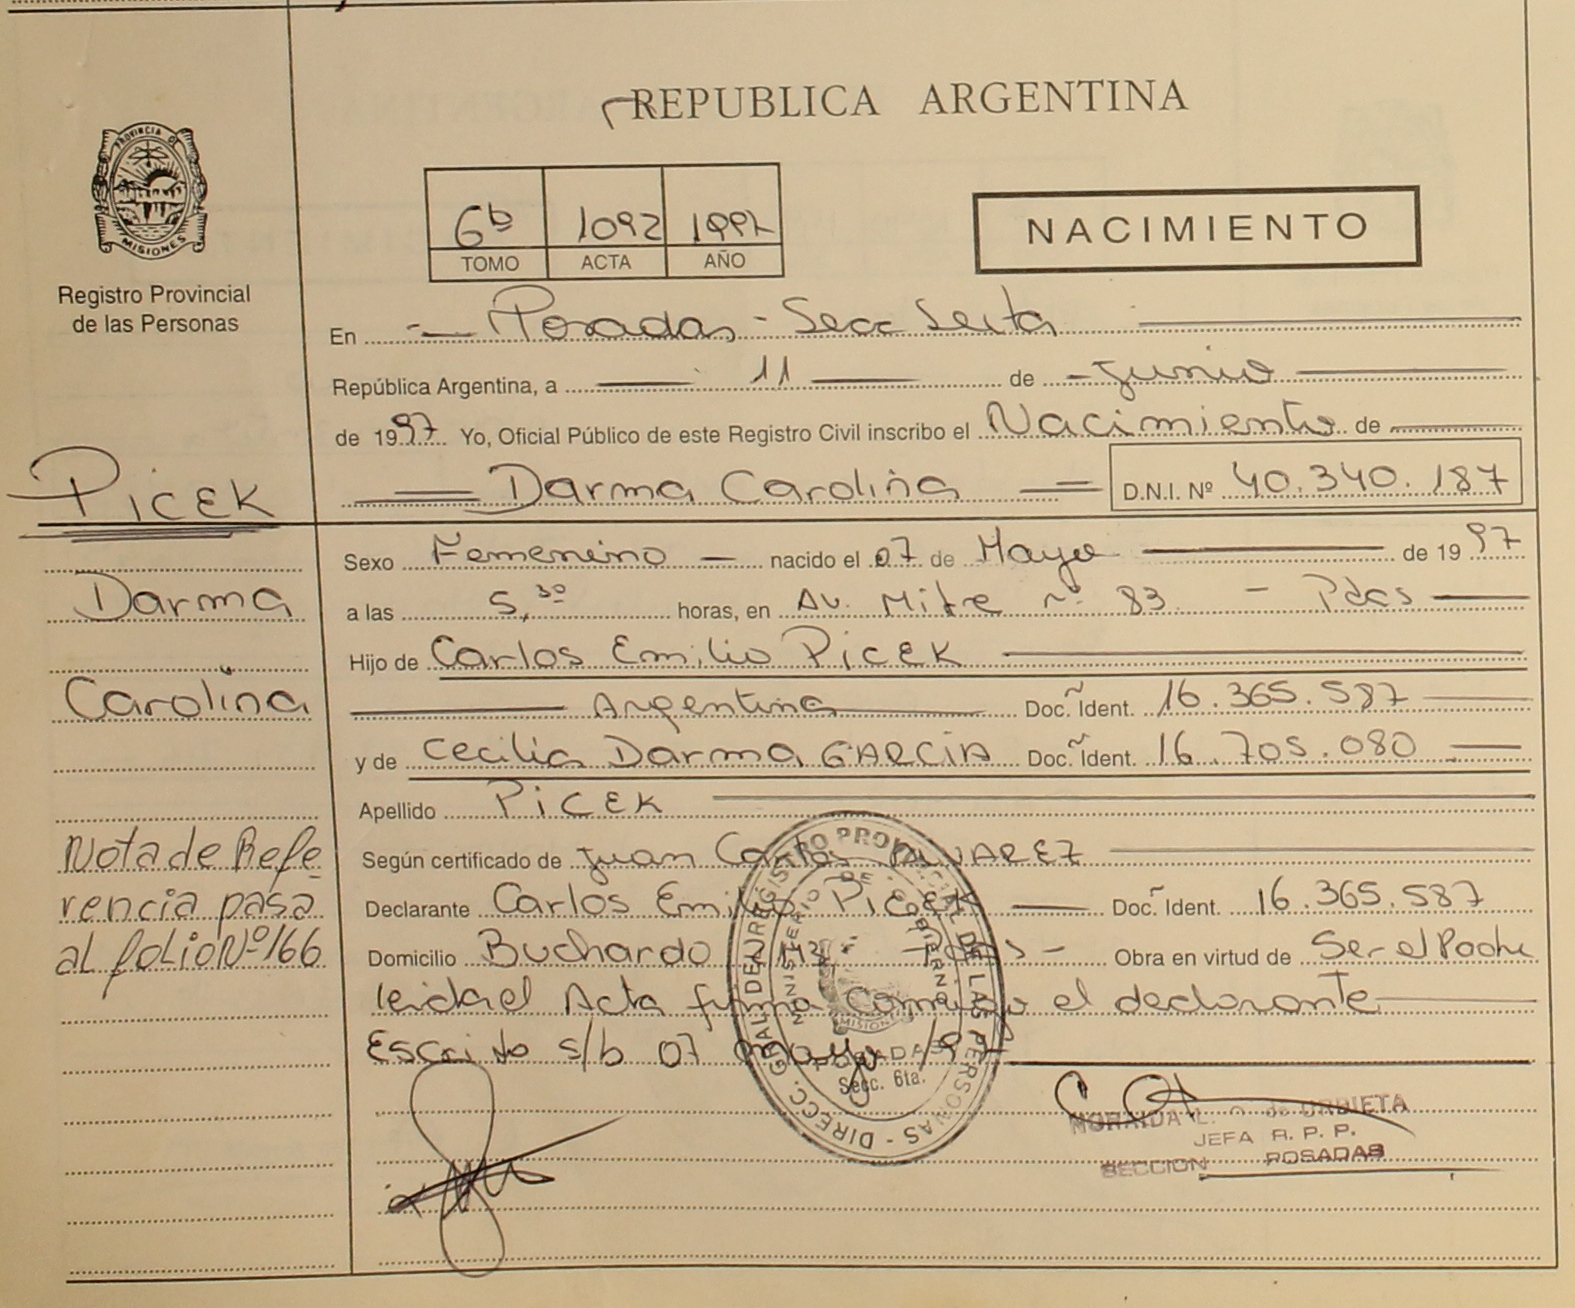 REPUBLICA ARGENTINA
PROVINCIA DE
MISIONES
Registro Provincial
de las Personas
6b 1092 1997
TOMO ACTA AÑO
NACIMIENTO
En Posadas - Secc Sexta
República Argentina, a 11 de Junio
de 1997 Yo, Oficial Público de este Registro Civil inscribo el Nacimiento de
Darma Carolina D.N.I. Nº 40.340.187
PICEK
Darma
Carolina
Nota de Refe
rencia pasa
al folio Nº 166
Sexo Femenino nacido el 07 de Mayo de 1997
a las 5,30 horas, en Av. Mitre nº 83 - Pdas
Hijo de Carlos Emilio PICEK
Argentina Doc. Ident. 16.365.587
y de Cecilia Darma GARCIA Doc. Ident. 16.705.080
Apellido PICEK
Según certificado de Juan Carlos ALVAREZ
Declarante Carlos Emilio PICEK Doc. Ident. 16.365.587
Domicilio Buchardo Pdas - Obra en virtud de Ser el Padre
leida el Acta firma conmigo el declarante
Escrito s/b 07 mayo /97
DIRECC. GRAL DEL REGISTRO PROVINCIAL DE LAS PERSONAS
MINISTERIO DE GOBIERNO
MISIONES
POSADAS
Secc. 6ta.
de URBIETA
JEFA R. P. P.
SECCION POSADAS